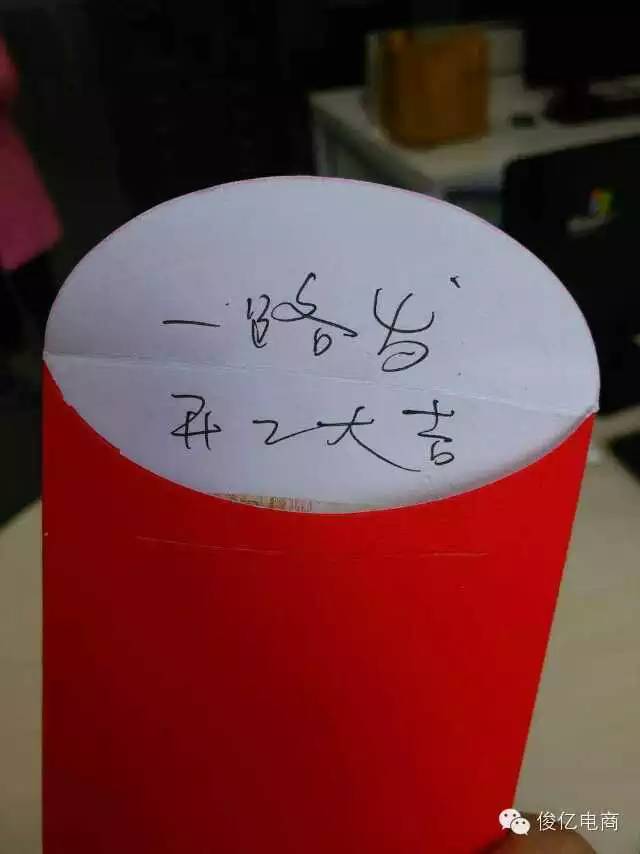 一路发
开工大吉
俊亿电商